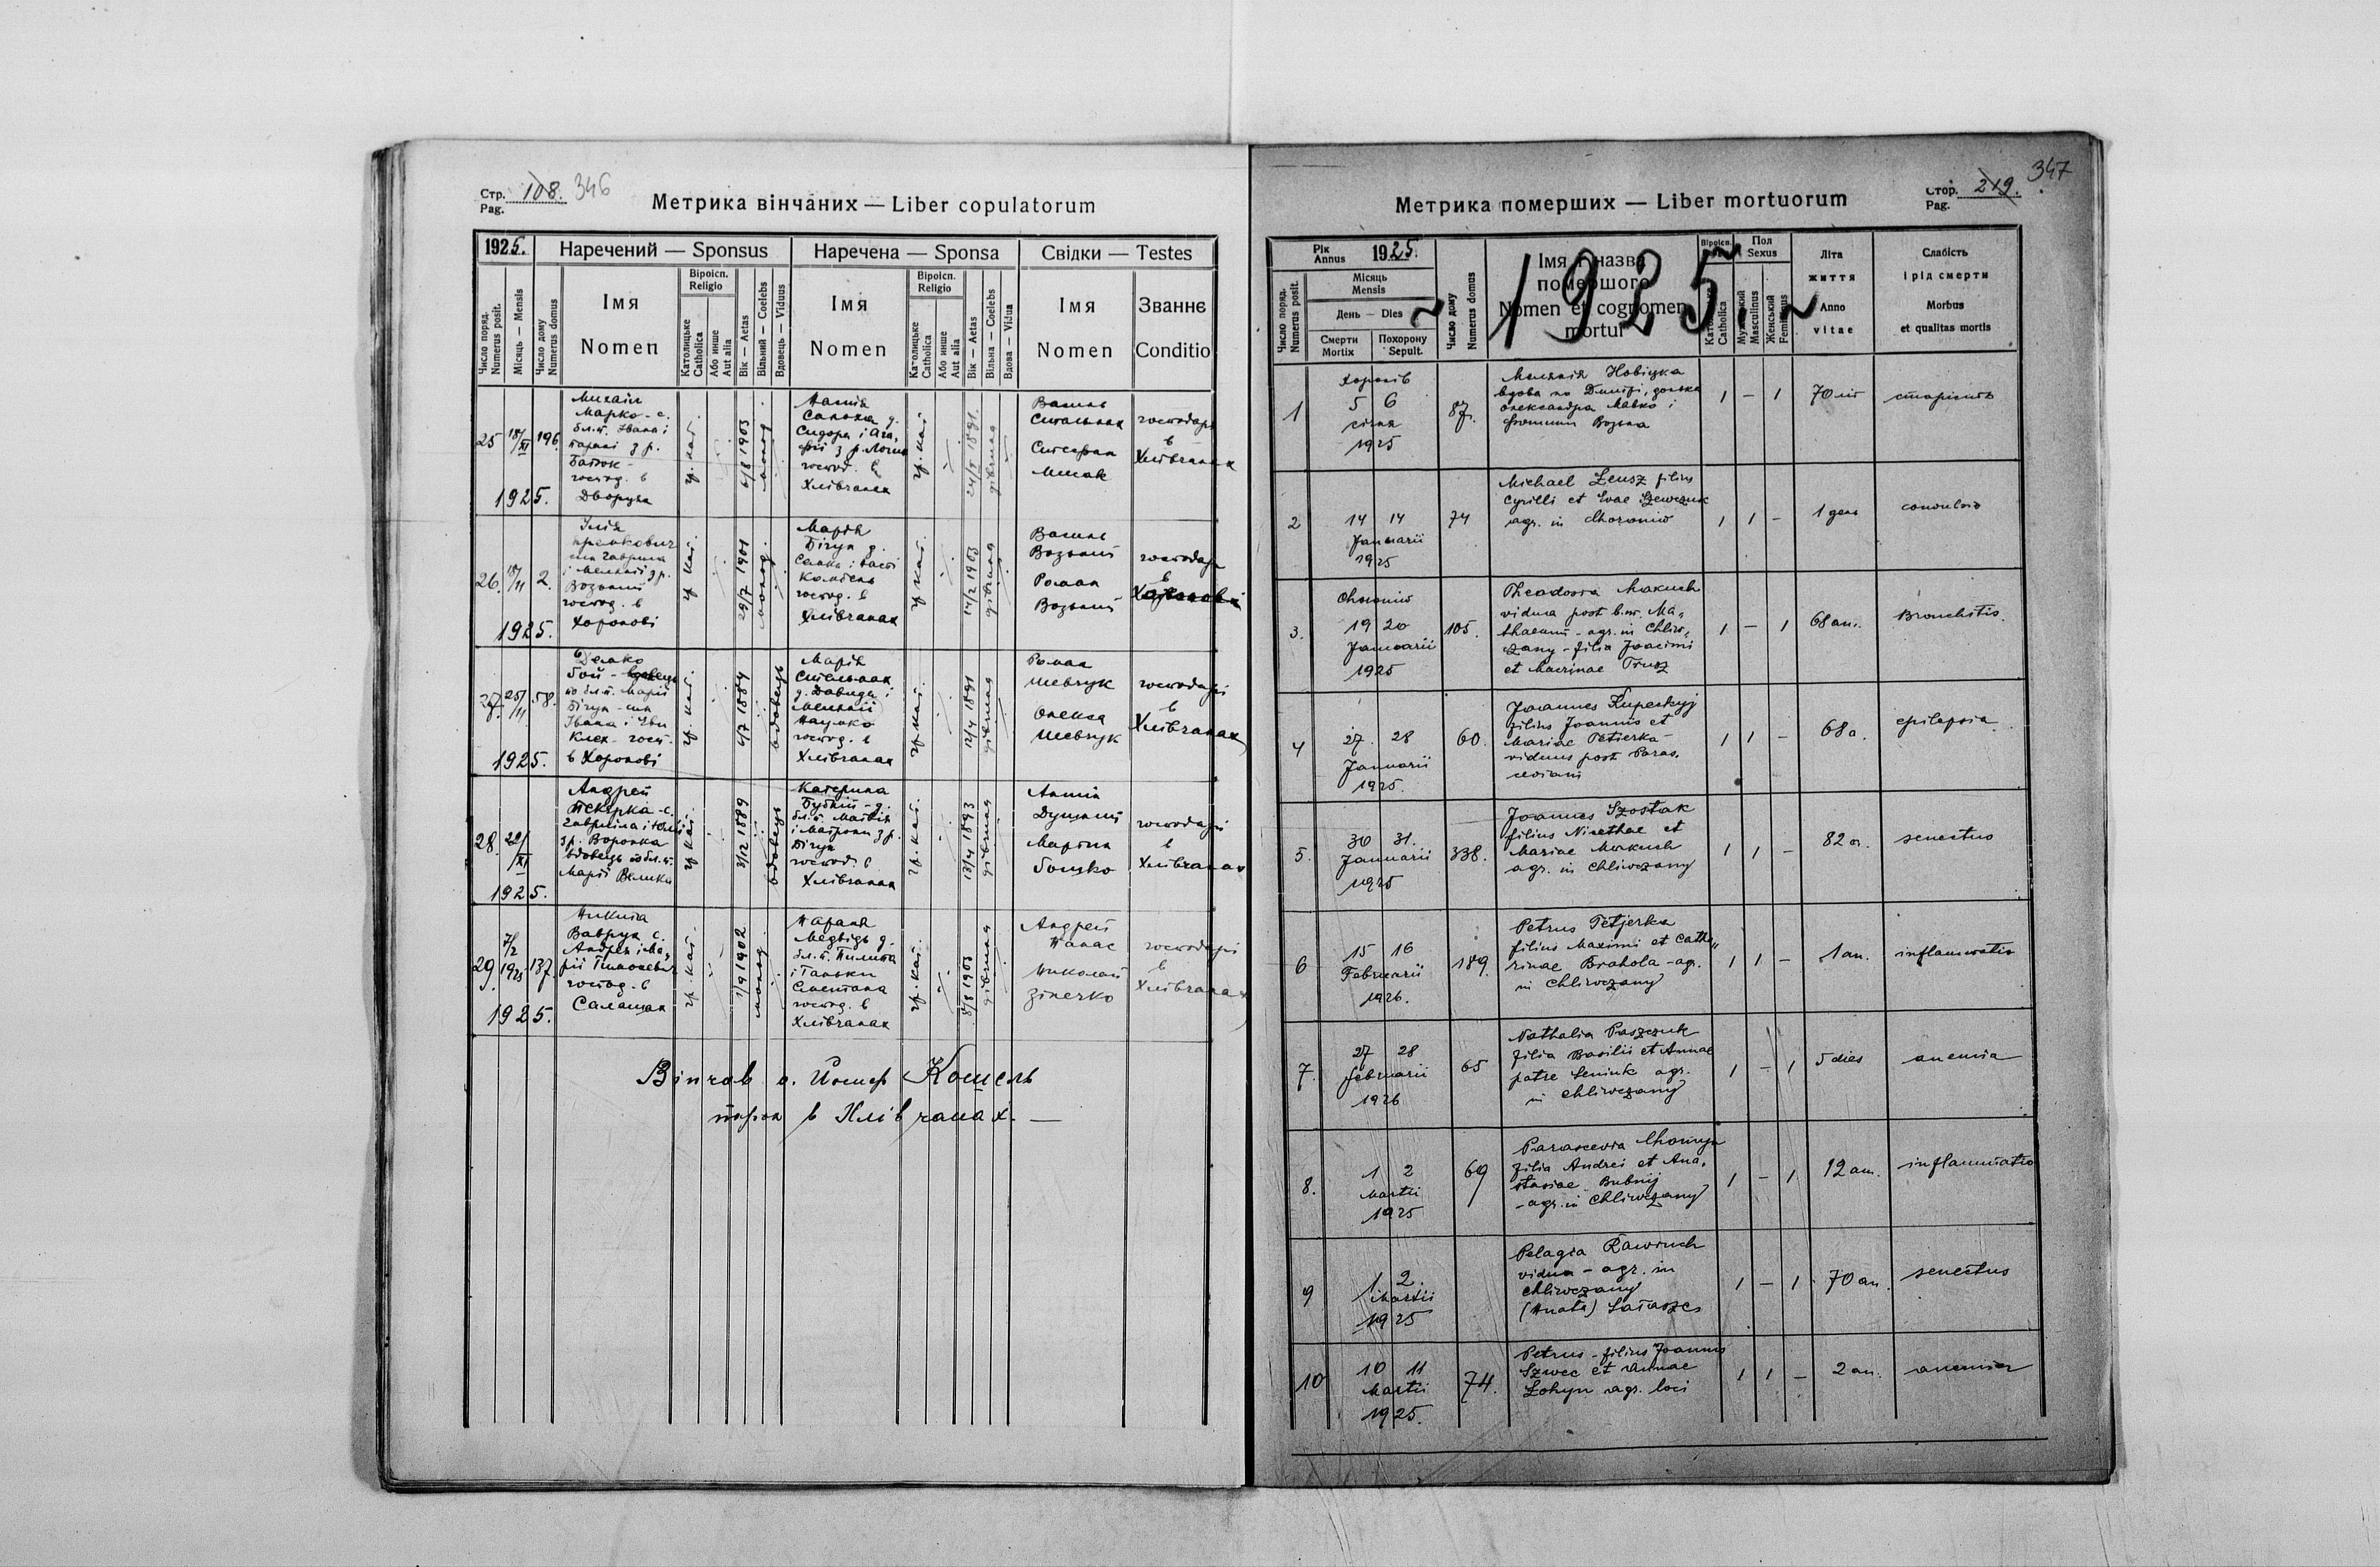 Стр. 108. 346
Pag.
Метрика вінчаних — Liber copulatorum
1925.
Наречений — Sponsus
Наречена — Sponsa
Свідки — Testes
Число поряд.
Numerus posit.
Місяць — Mensis
Число дому
Numerus domus
Імя
Nomen
Віроісп.
Religio
Католицьке
Catholica
Або инше
Aut alia
Вік — Aetas
Вільний — Coelebs
Вдовець — Viduus
Імя
Nomen
Віроісп.
Religio
Католицьке
Catholica
Або инше
Aut alia
Вік — Aetas
Вільна — Coelebs
Вдова — Vidua
Імя
Nomen
Званнє
Conditio
25
18/XI
196.
1925.
Михаіл
Марко - с.
бл.п. Івана і
з р.
господ. в
гр. кат.
6/8 1903
молод.
Сидора і
господ. в
Хлівчанах
гр. кат.
24/5 1891
дівиця
Василь
Стельмах
Стефан
господарі
в
Хлівчанах
26.
18/11
2.
1925.
Ілія
син Гаврила
господ. в
Хоронові
гр. кат.
29/7 1901
молод.
Марія
Бігун д.
господ. в
Хлівчанах
гр. кат.
14/2 1903
дівиця
Василь
Возьний
Роман
Возьний
господарі
в
27.
25/11
58.
1925.
бл.п. Марії
Бігун - син
Івана і Еви
в Хоронові
гр. кат.
6/7 1884
вдовець
Марія
Стельмах
д. Давида і
Меланії
господ. в
Хлівчанах
гр. кат.
12/4 1891
дівиця
Роман
Шевчук
Олекса
Шевчук
господарі
в
Хлівчанах
28.
22/XI
1925.
Андрей
Петєрка - с.
Гавриїла і
з р. Воронка
вдовець по бл.п.
Марії
гр. кат.
3/12 1889
вдовець
Катерина
Бубній - д.
бл.п. Матвія
і Матрони з р.
Бігун
господ. в
Хлівчанах
гр. кат.
13/4 1893
дівиця
Антін
Мартин
Боцко
господарі
в
Хлівчанах
29.
7/2
1925
137.
1925.
Никита
Ваврух с.
Андрея і Ма,
рії
господ. в
Салашах
гр. кат.
1/9 1902
молод.
Параня
Медвідь д.
бл.п. Пилипа
і Таньки
Сметана
господ. в
Хлівчанах
гр. кат.
8/8 1903
дівиця
Андрей
Панас
Николай
Зінечко
господарі
в
Хлівчанах
Вінчав о. Йосиф Кошель
парох в Хлівчанах. —
347
Стор. 219.
Pag.
Метрика померших — Liber mortuorum
Рік
Annus
1925.
Місяць
Mensis
День — Dies
Смерти
Mortix
Похорону
Sepult.
Число поряд.
Numerus posit.
Число дому
Numerus domus
Імя і назва
помершого
Nomen et cognomen
mortui
~ 1925. ~
Віроісп.
Catholica
Пол
Sexus
Мужеський
Masculinus
Женський
Femininus
Літа
життя
Anno
vitae
Слабість
і рід смерти
Morbus
et qualitas mortis
1
Хоронів
5 6
січня
1925
87.
Меланія Новіцка
вдова по Дмитрі, донька
Олександра Мавко і
Возьна
1 - 1
70 літ
старість
2
14 14
Januarii
1925
74
Michael Leusz filius
Cyrilli et Evae Szewczuk
agr. in Choroniw
1 1 -
1 день
convulsio
3.
Choroniw
19 20
Januarii
1925
105.
Theodosia Makuch
vidua post b.m. Ma,
thaeum - agr. in Chliw,
czany - filia Joacimi
et Macrinae Trusz
1 - 1
68 an.
Bronchitis.
4
27. 28
Januarii
1925.
60.
Joannes Kupeckyj
filius Joannis et
Mariae Petierka -
viduus post Paras,
ceviam
1 1 -
68 a.
epilepsia
5.
30 31.
Januarii
1925
338.
Joannes Szostak
filius Nicethae et
Mariae Makuch
agr. in Chliwczany
1 1 -
82 a.
senectus
6
15 16
Februarii
1926.
189.
Petrus Petjerka
filius Maximi et Catha,,
rinae Brahola - agr.
in Chliwczany
1 1 -
1 an.
inflammatio
7.
27 28
februarii
1926
65
Nathalia Paszczuk
filia Basilii et Annae
patre Seniuk agr.
in Chliwczany
1 - 1
5 dies
anemia
8.
1 2
Martii
1925
69
Parascevia Chomyn
filia Andrei et Ana,
stasiae Bubnij
- agr. in Chliwczany
1 - 1
12 an.
inflammatio
9
1 2.
Martii
1925
Pelagia Rawruch
vidua - agr. in
Chliwczany
1 - 1
70 an.
senectus
10
10 11
Martii
1925.
74.
Petrus - filius Joannis
Szwec et Annae
Lohyn agr. loci
1 1 -
2 an.
anemia